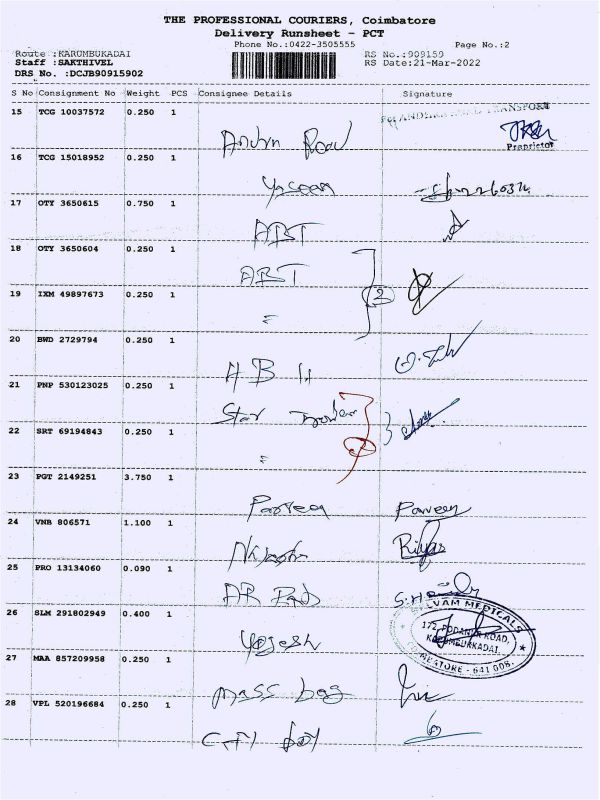 THE PROFESSIONAL COURIERS, Coimbatore
Delivery Runsheet - PCT
Phone No.:0422-3505555 Page No.:2
Route :KARUMBUKADAI RS No.:909159
Staff :SAKTHIVEL RS Date:21-Mar-2022
DRS No. :DCJB90915902
S No Consignment No Weight PCS Consignee Details Signature
15 TCG 10037572 0.250 1
TRANSPORT
Proprietor
16 TCG 15018952 0.250 1
Yaseen
17 OTY 3650615 0.750 1
ABT
18 OTY 3650604 0.250 1
ABT
19 IXM 49897673 0.250 1
2
"
20 BWD 2729794 0.250 1
21 PNP 530123025 0.250 1
Star
22 SRT 69194843 0.250 1
2
"
23 PGT 2149251 3.750 1
Parveen Parveen
24 VNB 806571 1.100 1
Riyas
25 PRO 13134060 0.090 1
SELVAM MEDICALS
172, PODANUR ROAD,
KARUMBUKKADAI,
COIMBATORE - 641 008.
26 SLM 291802949 0.400 1
Yogesh
27 MAA 857209958 0.250 1
Mass bag
28 VPL 520196684 0.250 1
City